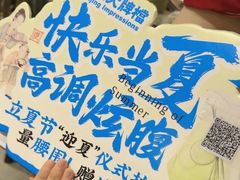 大牌檔
ing Impressions
快乐当夏
高调炫腹
Beginning of
Summer
立夏节“迎夏”仪式
量腰围 赠